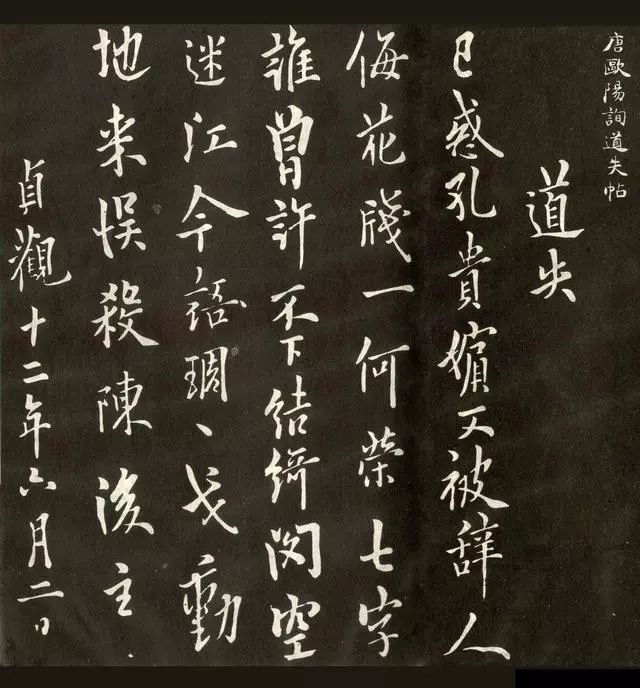 唐歐陽詢道失帖
道失
已惑孔貴嬪又被辞人
侮花牋一何荣七字
誰曾許不下结綺閣空
迷江令語琱戈動
地来悮殺陳後主
貞觀十二年六月二日